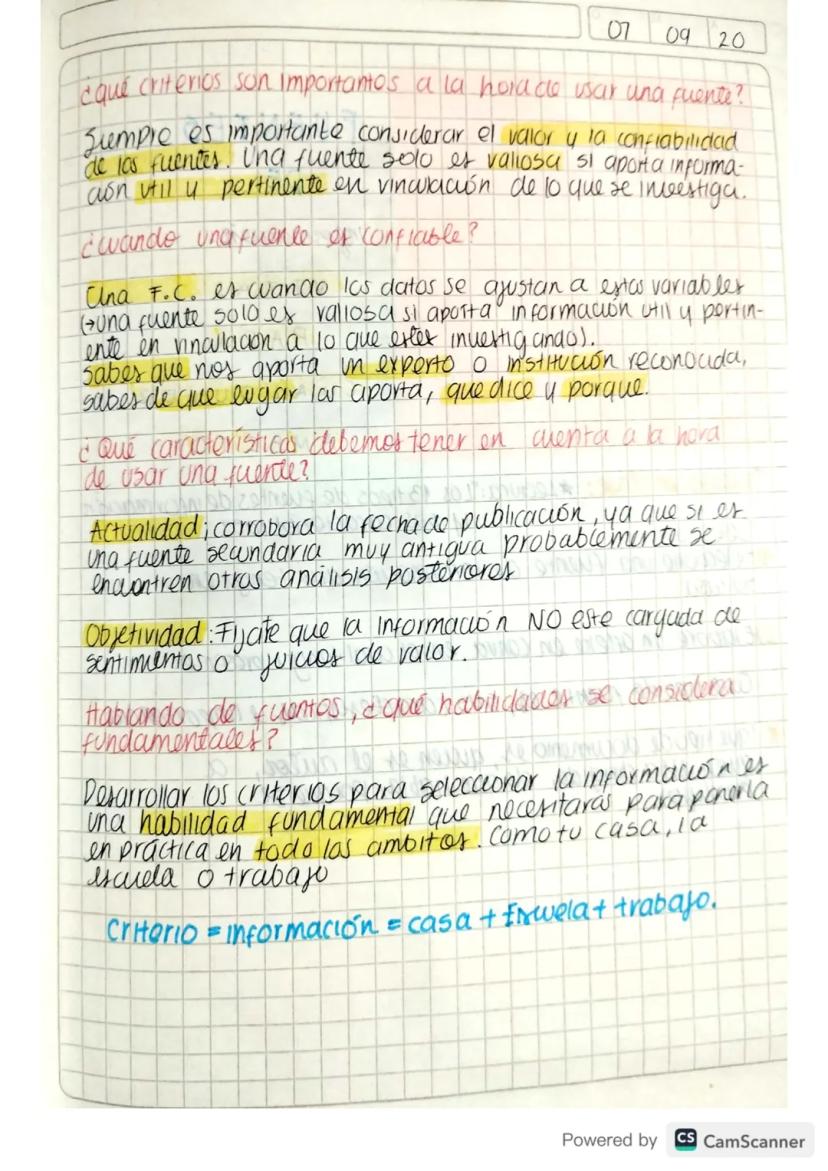 07 09 20
¿qué criterios son importantes a la hora de usar una fuente?
Siempre es importante considerar el valor y la confiabilidad
de las fuentes. Una fuente solo es valiosa si aporta informa-
ción util y pertinente en vinculación de lo que se investiga.
¿cuando una fuente es confiable?
Una F.C. es cuando los datos se ajustan a estas variables
(→una fuente solo es valiosa si aporta información util y pertin-
ente en vinculacion a lo que estes investigando).
sabes que nos aporta un experto o institución reconocida,
sabes de que lugar las aporta, que dice y porque.
¿Qué características debemos tener en cuenta a la hora
de usar una fuente?
Actualidad; corrobora la fecha de publicación, ya que si es
una fuente secundaria muy antigua probablemente se
encuentren otros análisis posteriores
Objetividad: Fijate que la información NO este cargada de
sentimientos o juicios de valor.
Hablando de fuentes, ¿qué habilidades se considera
fundamentales?
Desarrollar los criterios para seleccionar la información es
una habilidad fundamental que necesitarás para ponerla
en práctica en todo los ambitos. Como tu casa, la
escuela o trabajo
criterio = información = casa + Escuela + trabajo.
Powered by CS CamScanner